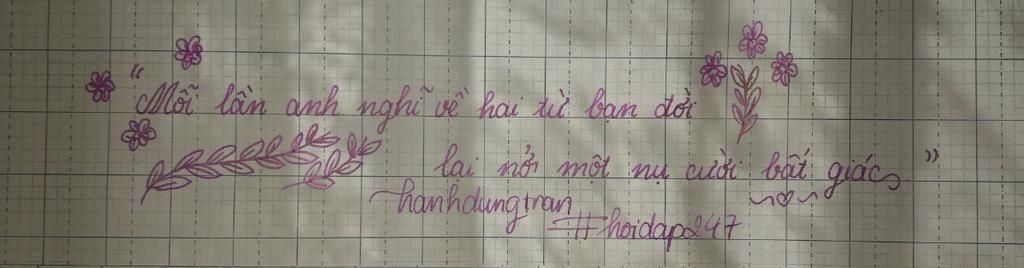 "Mỗi lần anh nghĩ về hai từ bạn đời
lại nở một nụ cười bất giác"
hanhdungtran
#hoidap247